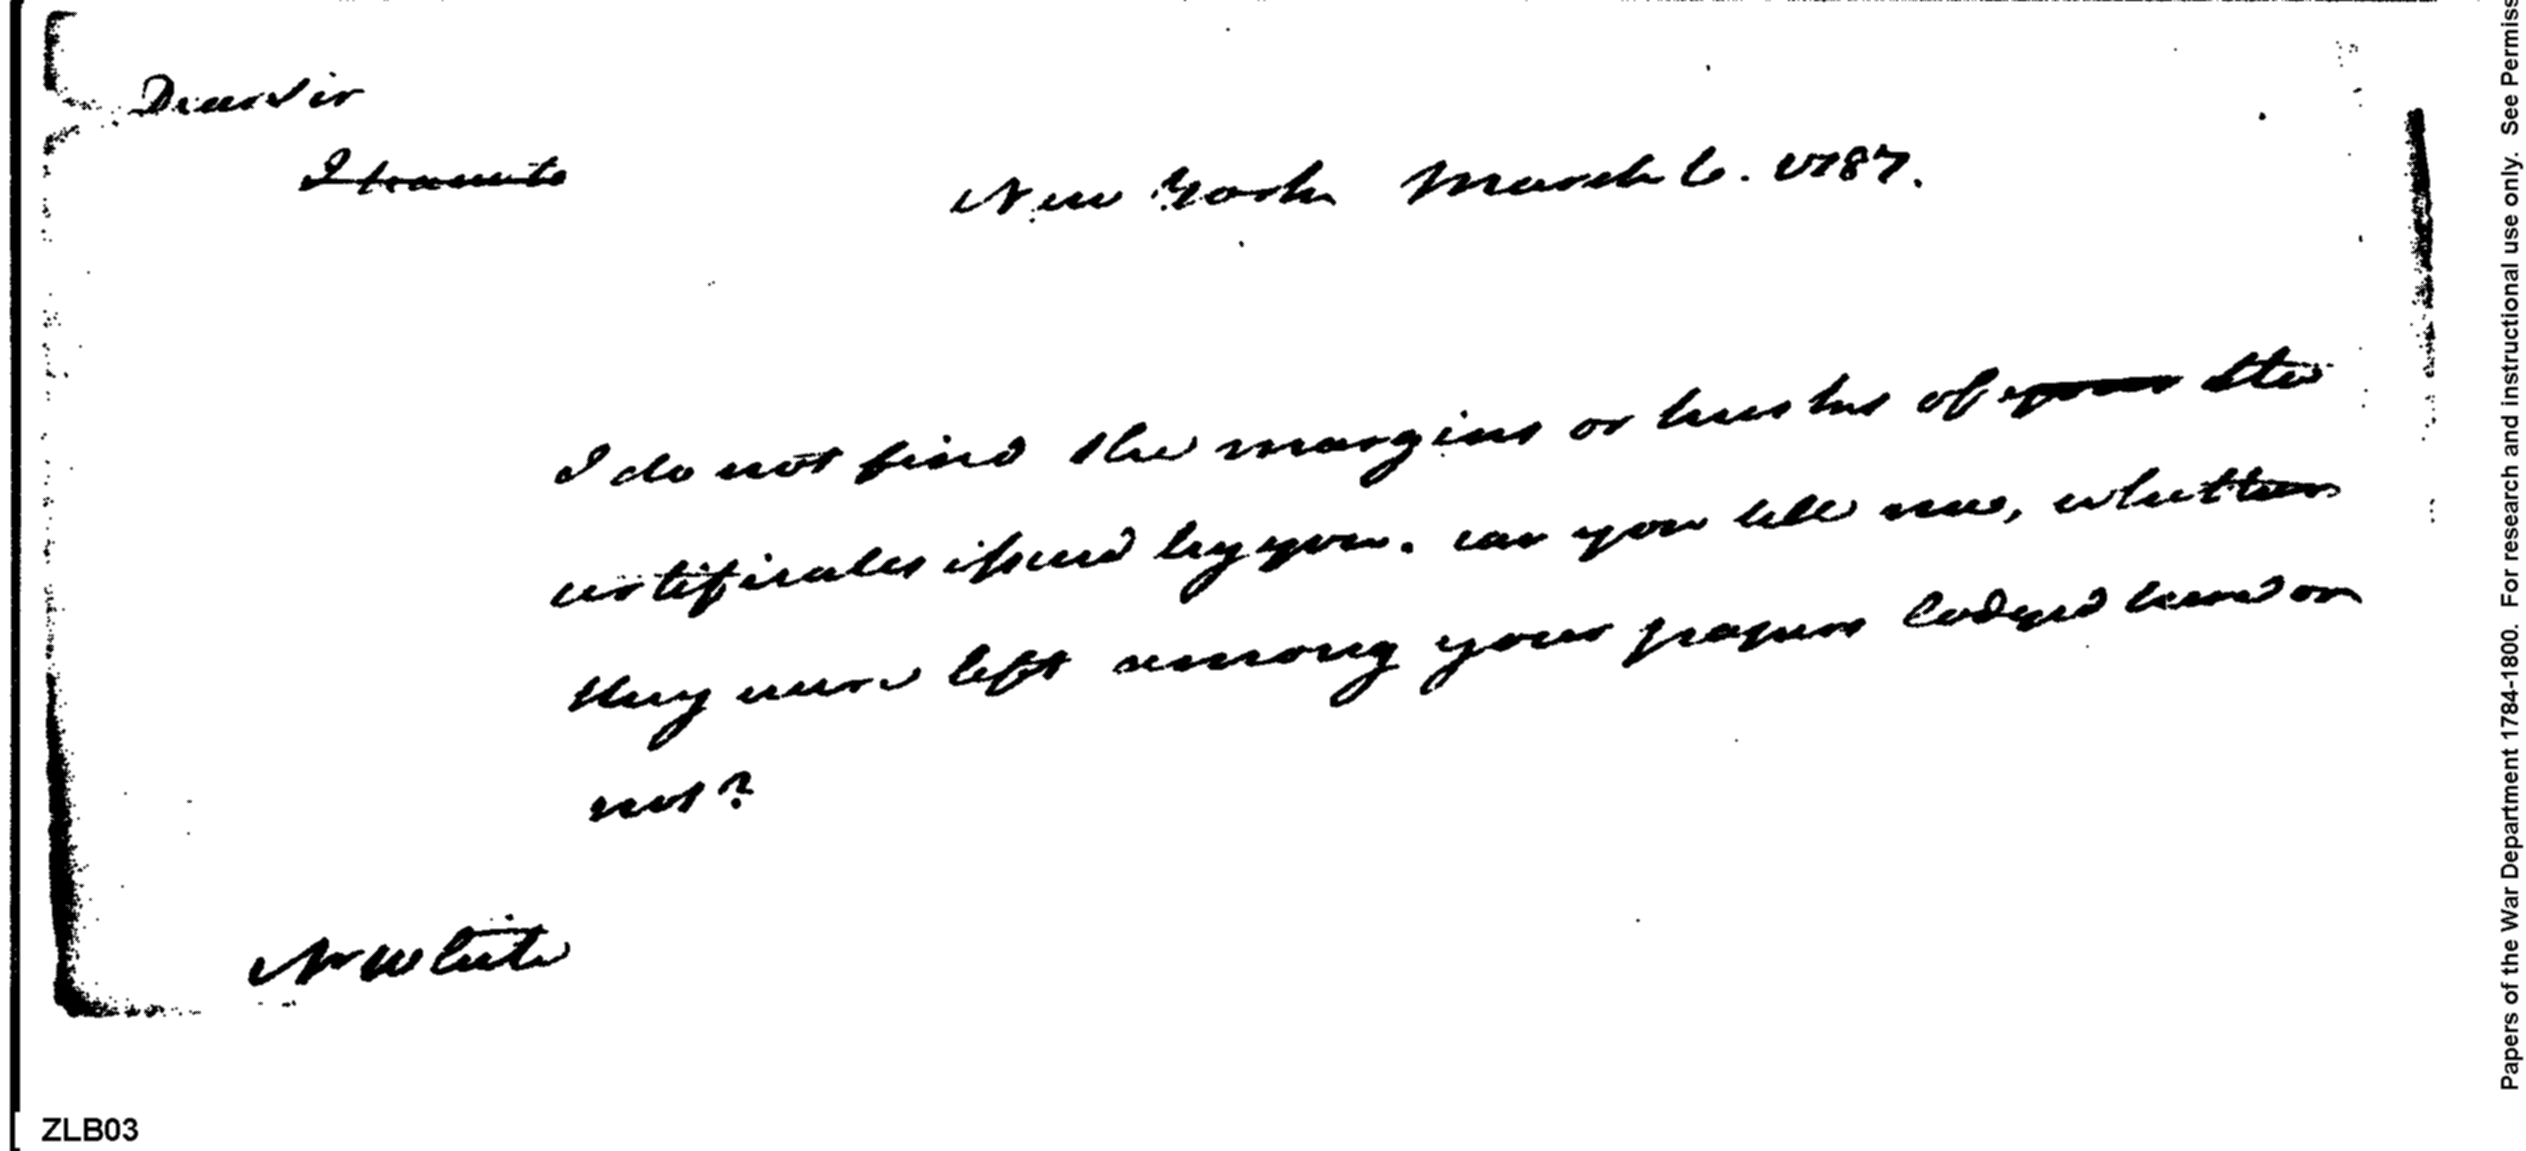 Dear Sir
I transmit
New York March 6. 1787.
I do not find the margins or husks of your the
certificates issued by you. can you tell me, whether
they were left among your papers lodged here or
not?
Mr White
ZLB03
Papers of the War Department 1784-1800. For research and instructional use only. See Permiss